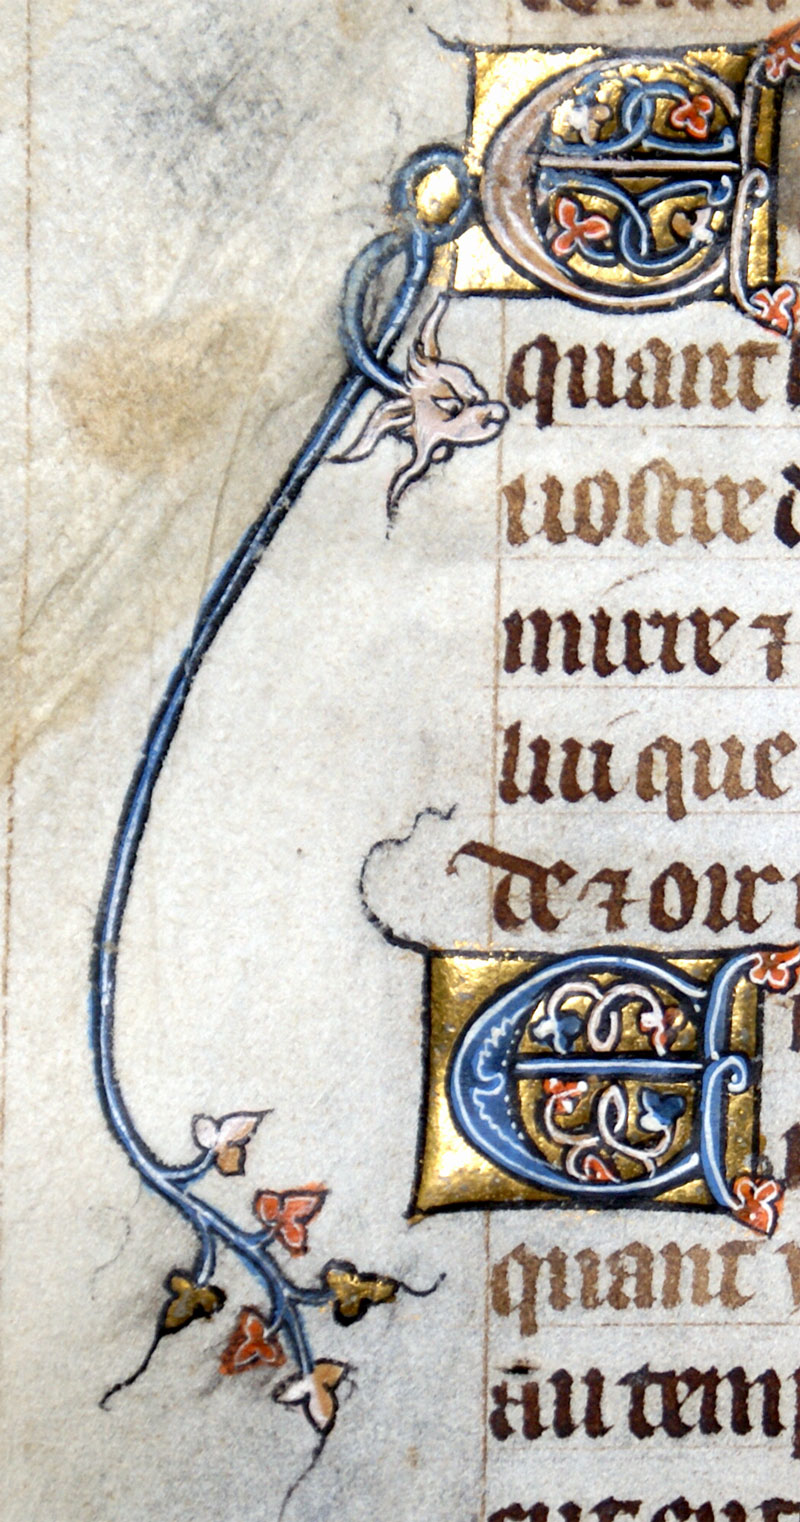 E
quant
nostre
mure ⁊
lui que
de ⁊ oir
E
quant
au temp